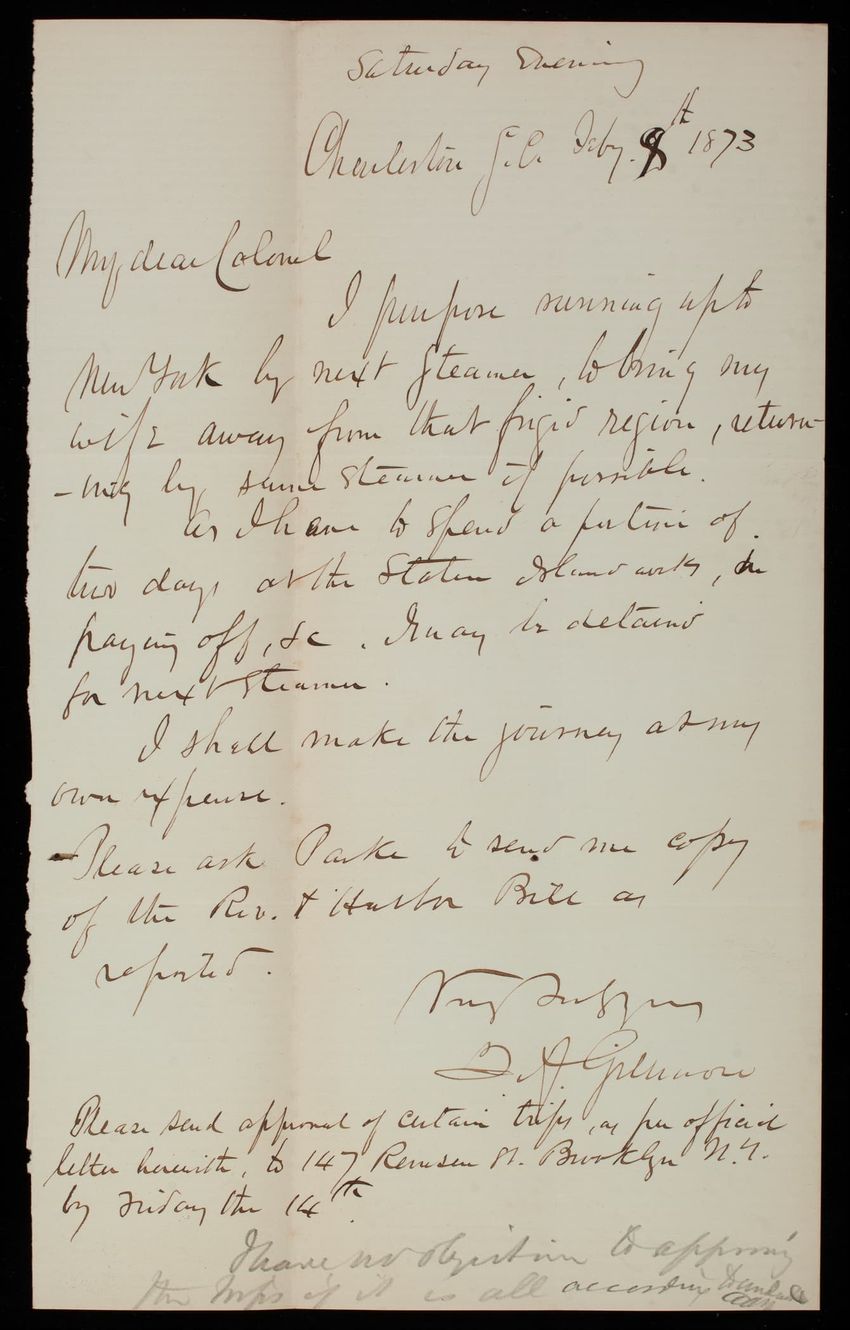 Saturday Evening
Charleston S.C. Feby. 8th 1873
My dear Colonel
I purpose running up to
New York by next Steamer, to bring my
wife away from that frigid region, return-
-ing by same Steamer if possible.
As I have to spend a portion of
two days at the Staten Island works, in
paying off, &c. I may be detained
for next Steamer.
I shall make the journey at my
own expense.
Please ask Parke to send me copy
of the Riv. & Harbor Bill as
reported.
Very truly yours
Q. A. Gillmore
Please send approval of certain trips, as per official
letter herewith, to 147 Remsen St. Brooklyn N.Y.
by Friday the 14th.
I have no objection to approving
the trips if it is all according to